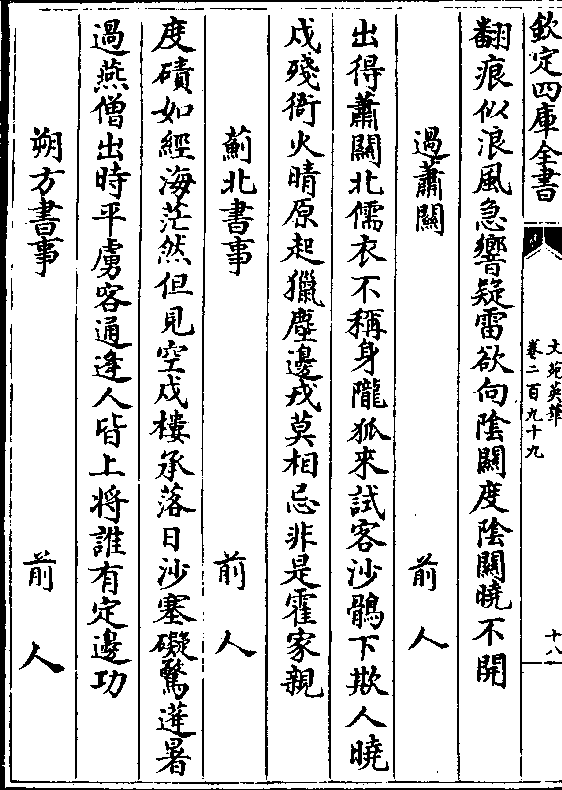 欽定四庫全書
文苑英華
卷二百九十九
十八
翻痕似浪風急響疑雷欲向陰關度陰關曉不開
過蕭關 前人
出得蕭關北儒衣不稱身隴狐來試客沙鶻下欺人曉
戍殘衙火晴原起獵塵邊戎莫相忌非是霍家親
薊北書事 前人
度磧如經海茫然但見空戍樓承落日沙塞礙驚蓬暑
過燕僧出時平虜客通逢人皆上將誰有定邊功
朔方書事 前人